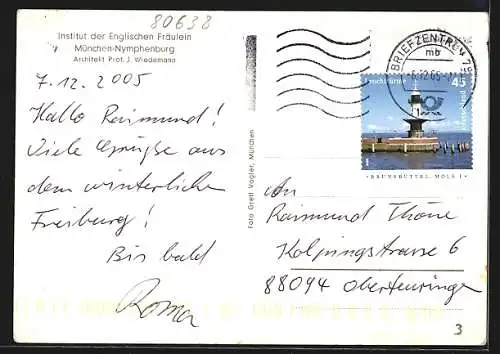 80638
Institut der Englischen Fräulein
München-Nymphenburg
Architekt Prof. J. Wiedemann
7.12.2005
Hallo Raimund!
Viele Grüße aus
dem winterlichen
Freiburg!
Bis bald
Roma
Foto Gretl Vogler, München
BRIEFZENTRUM 79
mb
Leuchttürme
45
BRUNSBÜTTEL, MOLE 1
An
Raimund Thöne
Kolpingstrasse 6
88094 Oberteuringen
3